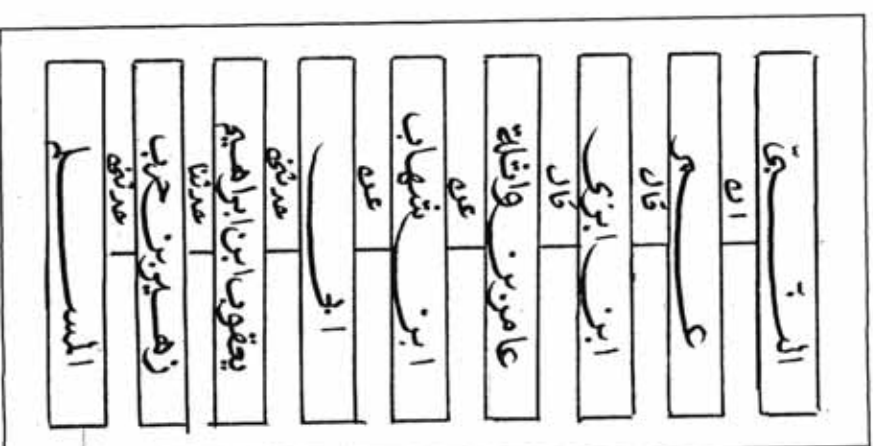 النبيّ
ان
عمر
قال
ابن ابزى
قال
عامر بن واثلة
عن
ابن شهاب
عن
ابي
حدثني
يعقوب ابن ابراهيم
حدثنا
زهير بن حرب
حدثني
المسلم